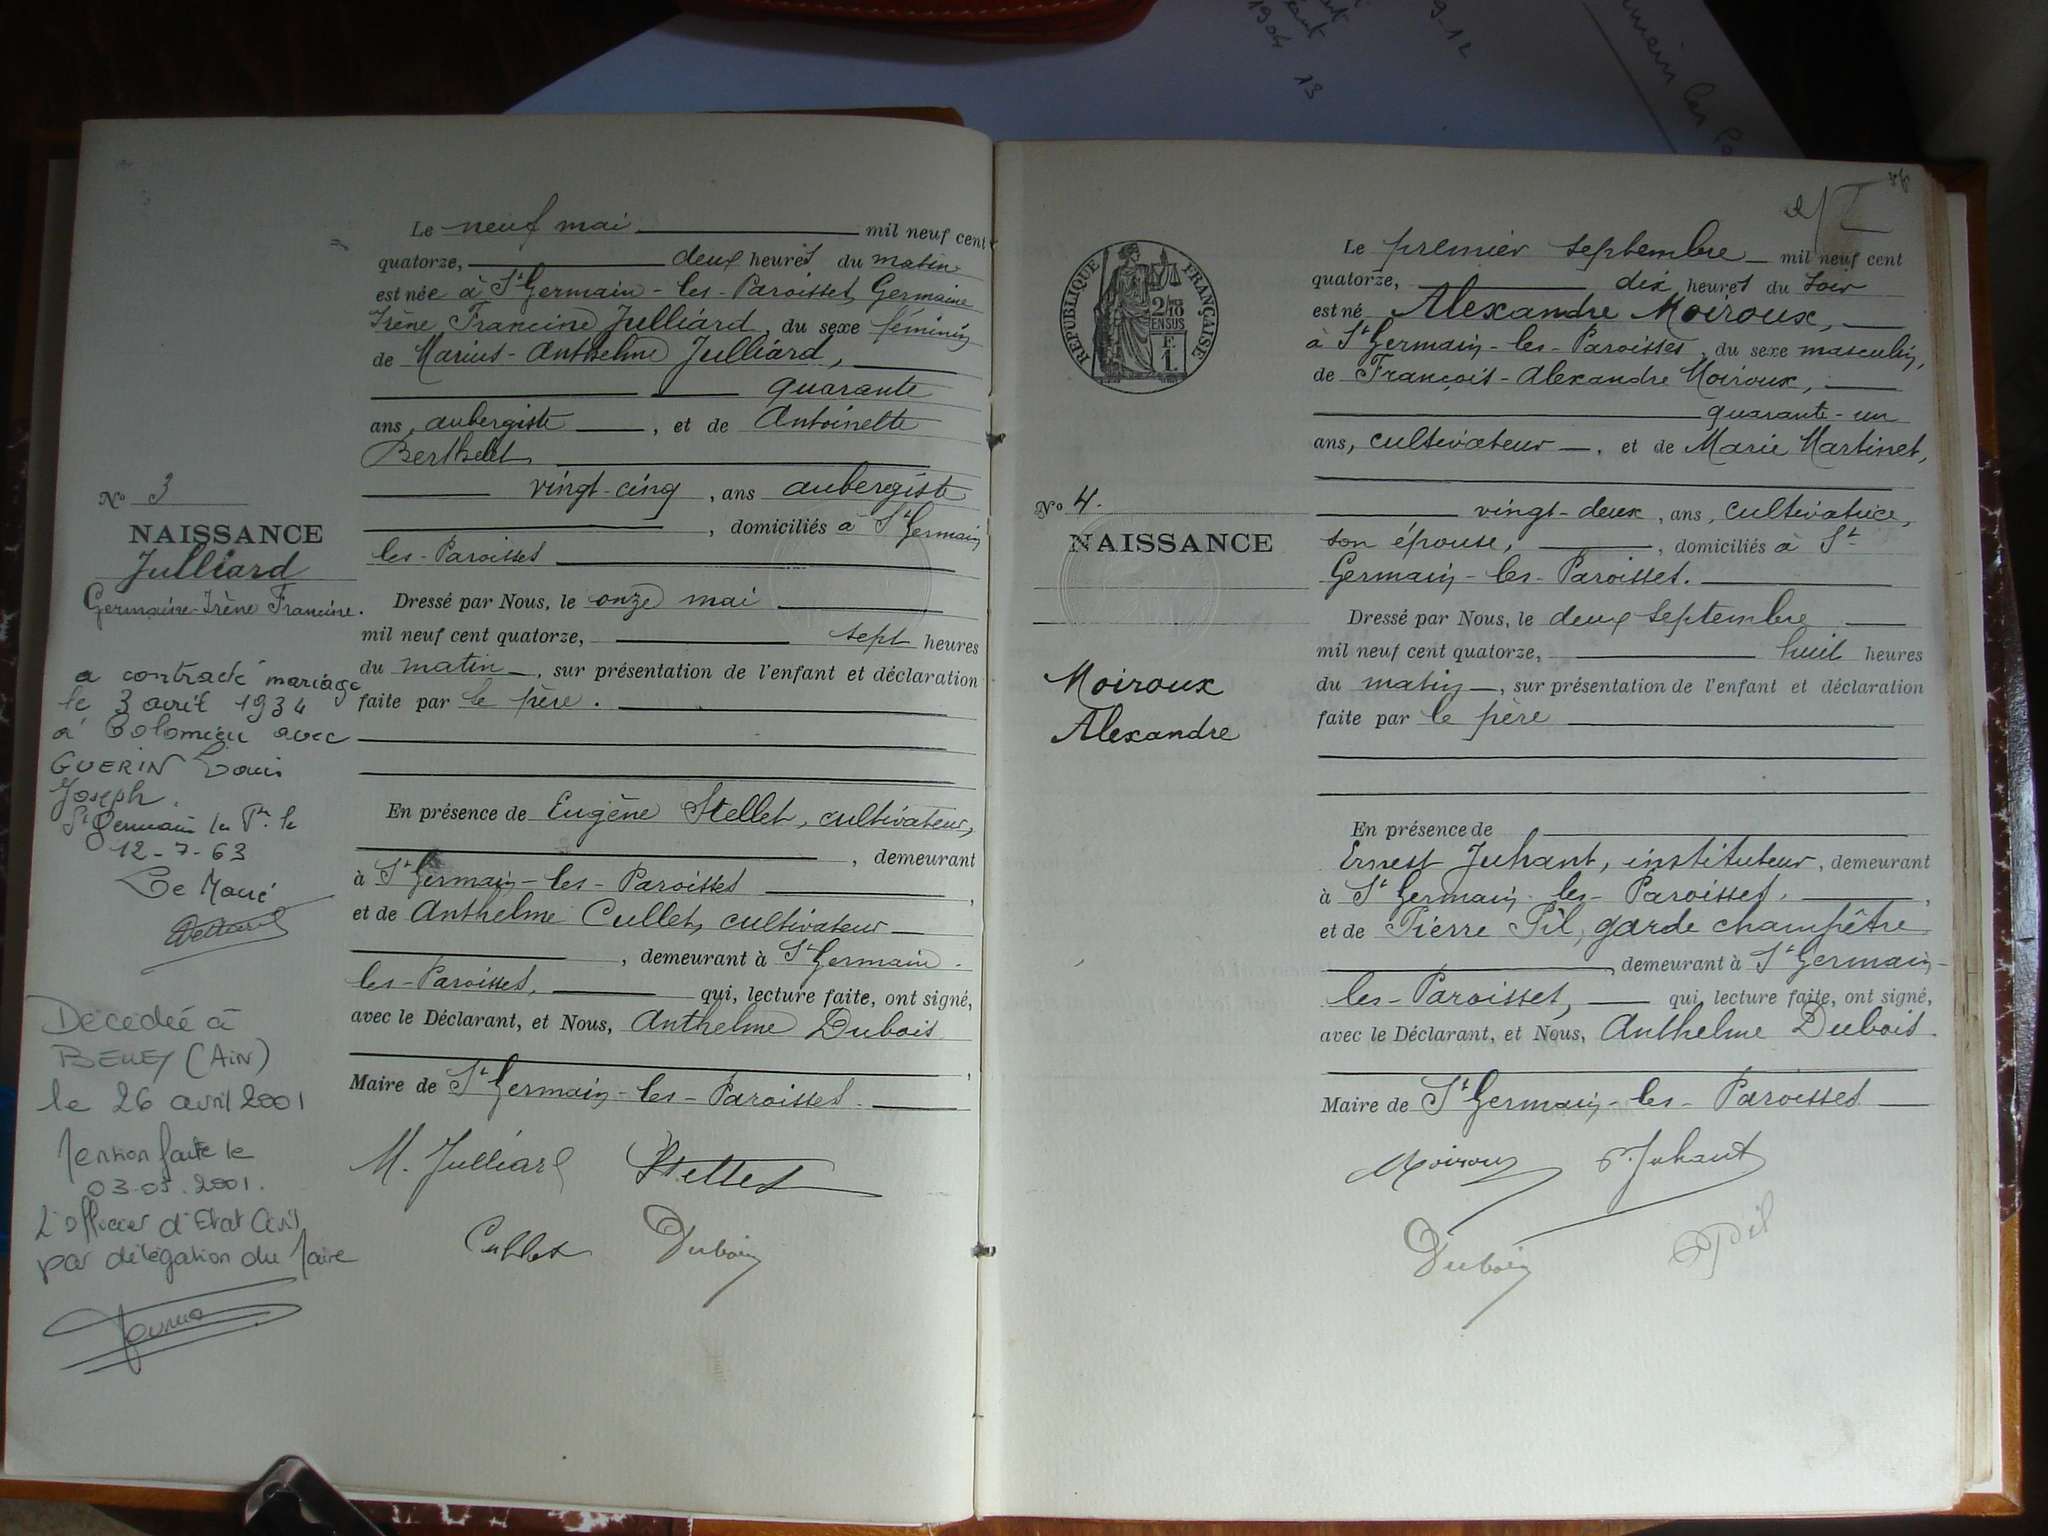 Le neuf mai mil neuf cent
quatorze, deux heures du matin
est née à St Germain-les-Paroisses, Germaine
Irène Francine Julliard, du sexe féminin
de Marius-Anthelme Julliard,
quarante
ans, aubergiste, et de Antoinette
Berthelet
vingt-cinq, ans aubergiste
, domiciliés à St Germain
les-Paroisses
Dressé par Nous, le onze mai
mil neuf cent quatorze, sept heures
du matin, sur présentation de l'enfant et déclaration
faite par le père.
En présence de Eugène Stellet, cultivateur,
, demeurant
à St Germain-les-Paroisses,
et de Anthelme Cullet, cultivateur
, demeurant à St Germain-
les-Paroisses, qui, lecture faite, ont signé,
avec le Déclarant, et Nous, Anthelme Dubois
,
Maire de St Germain-les-Paroisses.
M. Julliard Stellet
Cullet Dubois
No 3
NAISSANCE
Julliard
Germaine-Irène Francine.
a contracté mariage
le 3 avril 1934
à Colomieu avec
GUERIN Louis
Joseph.
St Germain les Ps le
12-7-63
Le Maire
Décédée à
BELLEY (Ain)
le 26 avril 2001
Mention faite le
03.05.2001.
L'officier d'Etat Civil
par délégation du Maire
RÉPUBLIQUE FRANÇAISE
2/10
EN SUS
F.
1.
No 4.
NAISSANCE
Moiroux
Alexandre
Le premier septembre mil neuf cent
quatorze, dix heures du soir
est né Alexandre Moiroux,
à St Germain-les-Paroisses, du sexe masculin,
de François-Alexandre Moiroux,
quarante-un
ans, cultivateur, et de Marie Martinet,
vingt-deux, ans, cultivatrice,
son épouse, , domiciliés à St
Germain-les-Paroisses.
Dressé par Nous, le deux septembre
mil neuf cent quatorze, huit heures
du matin, sur présentation de l'enfant et déclaration
faite par le père
En présence de
Ernest Juhant, instituteur, demeurant
à St Germain-les-Paroisses,
et de Pierre Pil, garde champêtre
, demeurant à St Germain-
les-Paroisses, qui, lecture faite, ont signé,
avec le Déclarant, et Nous, Anthelme Dubois
Maire de St Germain-les-Paroisses
Moiroux E. Juhant
Dubois Pil